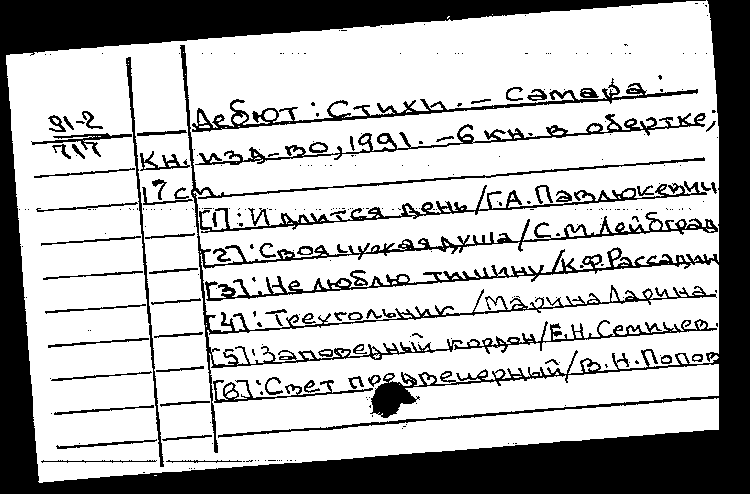 91-2
717
Дебют: Стихи. – Самара:
Кн. изд-во, 1991. – 6 кн. в обертке;
17 см.
[1]: И длится день / Г.А. Павлюкевич
[2]: Своя чужая душа / С.М. Лейбград
[3]: Не люблю тишину / К.Ф. Рассадин
[4]: Треугольник / Марина Ларина.
[5]: Заповедный кордон / Е.Н. Семичев.
[6]: Свет предвечерный / В.Н. Попов